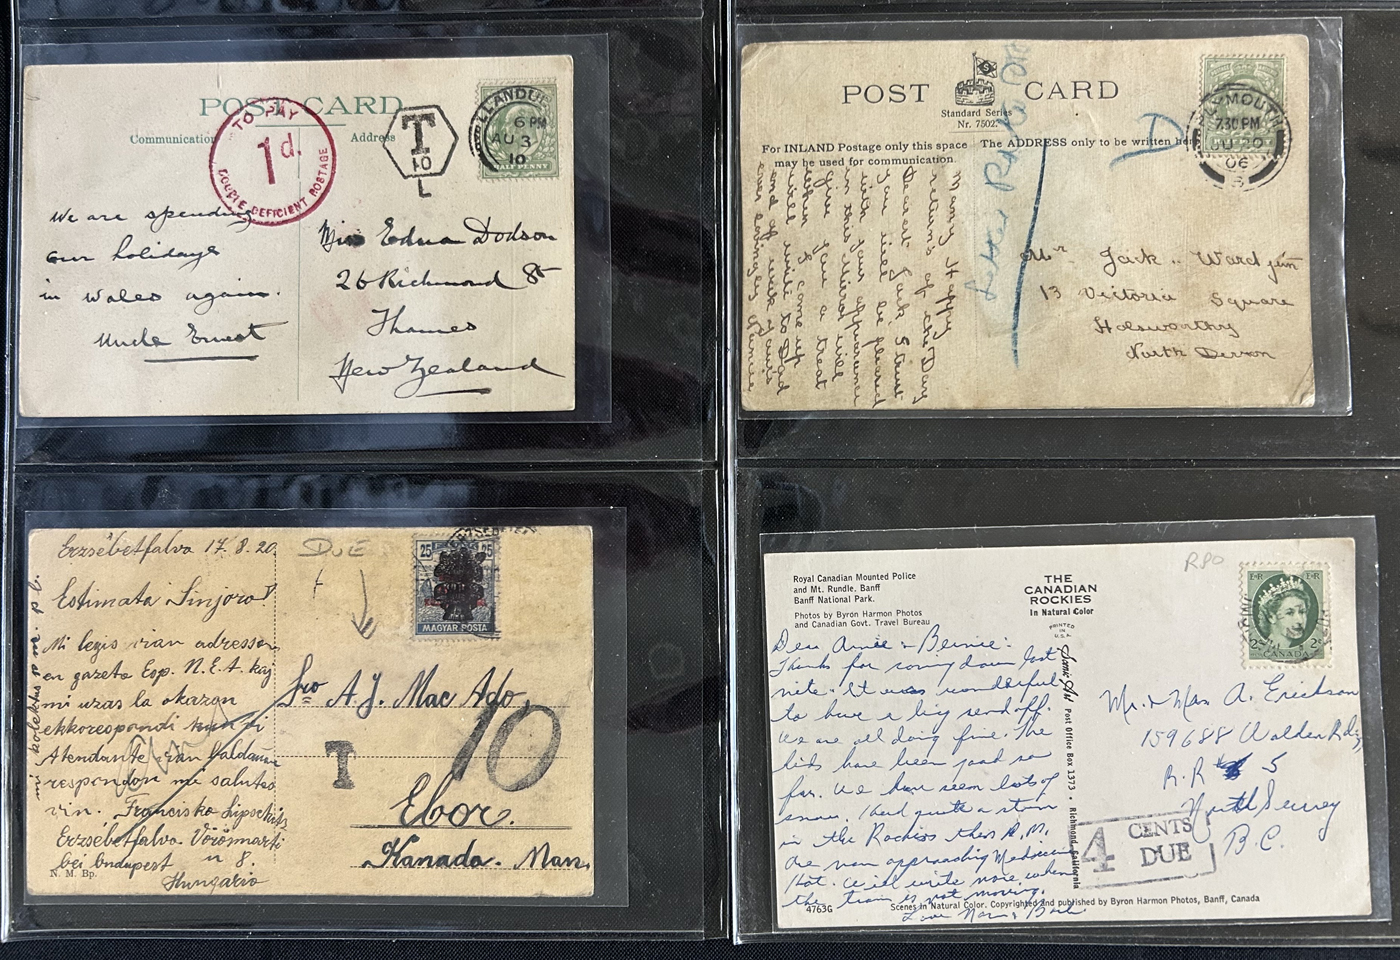 POST CARD
Communication
Address
TO PAY
1d.
DOUBLE DEFICIENT POSTAGE
T
10
L
LLANDU
6 PM
AU 3
10
HALF PENNY
We are spending
our holidays
in Wales again.
Uncle Ernest
Miss Edna Dodson
26 Richmond St
Thames
New Zealand
POST CARD
Standard Series
Nr. 7502.
For INLAND Postage only this space
may be used for communication.
The ADDRESS only to be written her
D
PLYMOUTH
7.30 PM
06
Many Happy
returns of the Day
Dearest Jack, I trust
you will be pleased
with your appearance
in this Mirror will
give you a treat
when I come up
will write to Dad
end of week
Mr Jack Ward jun
13 Victoria Square
Holsworthy
North Devon
Erzsébetfalva 17.8.20.
Estimata Sinjoro!
Mi legis vian adresson,
en gazeto Esp. N.E.A. kaj
mi uzas la okazon
ekkorespondi kun vi
Atendante vian baldaŭan
respondon mi salutas
vin. Francisko Lipschitz
Erzsébetfalva. Vörösmarti
bei Budapest u 8.
Hungario
N. M. Bp.
DUE
25 25
MAGYAR POSTA
Sro A.J. Mac Ado,
T
10
Ebor.
Kanada. Man.
Royal Canadian Mounted Police
and Mt. Rundle, Banff
Banff National Park.
Photos by Byron Harmon Photos
and Canadian Govt. Travel Bureau
THE
CANADIAN
ROCKIES
In Natural Color
PRINTED
IN
U.S.A.
RPO
E R
2¢ 2¢
CANADA
Dear Arnie & Bernie:
Thanks for coming down last
nite. It was wonderful
to have a big send off.
We are all doing fine. The
kids have been good so
far. We have seen lots of
snow. Had quite a storm
in the Rockies this A.M.
Are now approaching Medicine
Hat. Will write more when
the train is not moving.
Love
Scenic Art Post Office Box 1373 • Richmond, California
Mr. & Mrs A. Erickson
159688 Walden Rd.,
R.R # 5
North Surrey
B.C.
4 CENTS
DUE
4763G
Scenes in Natural Color. Copyrighted and published by Byron Harmon Photos, Banff, Canada